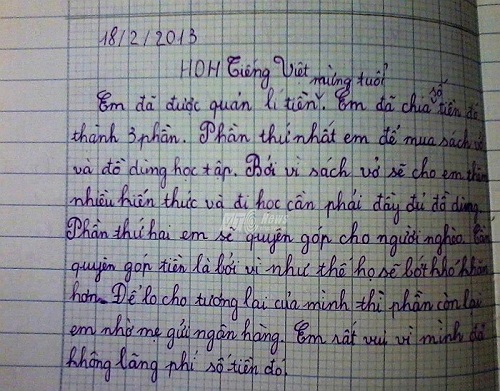 18/2/2013
HĐH Tiếng Việt
Em đã được quản lí tiền mừng tuổi. Em đã chia số tiền đó
thành 3 phần. Phần thứ nhất em để mua sách vở
và đồ dùng học tập. Bởi vì sách vở sẽ cho em thêm
nhiều kiến thức và đi học cần phải đầy đủ đồ dùng.
Phần thứ hai em sẽ quyên góp cho người nghèo. Em
quyên góp tiền là bởi vì như thế họ sẽ bớt khó khăn
hơn. Để lo cho tương lai của mình thì phần còn lại
em nhờ mẹ gửi ngân hàng. Em rất vui vì mình đã
không lãng phí số tiền đó.